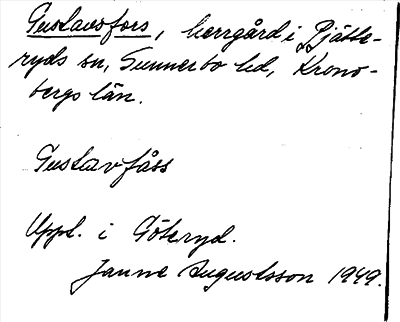 Gustavsfors, herrgård i Pjätte-
ryds sn, Sunnerbo hd, Krono-
bergs län.
Gustavfåss
Uppt. i Göteryd.
Janne Augustsson 1949.